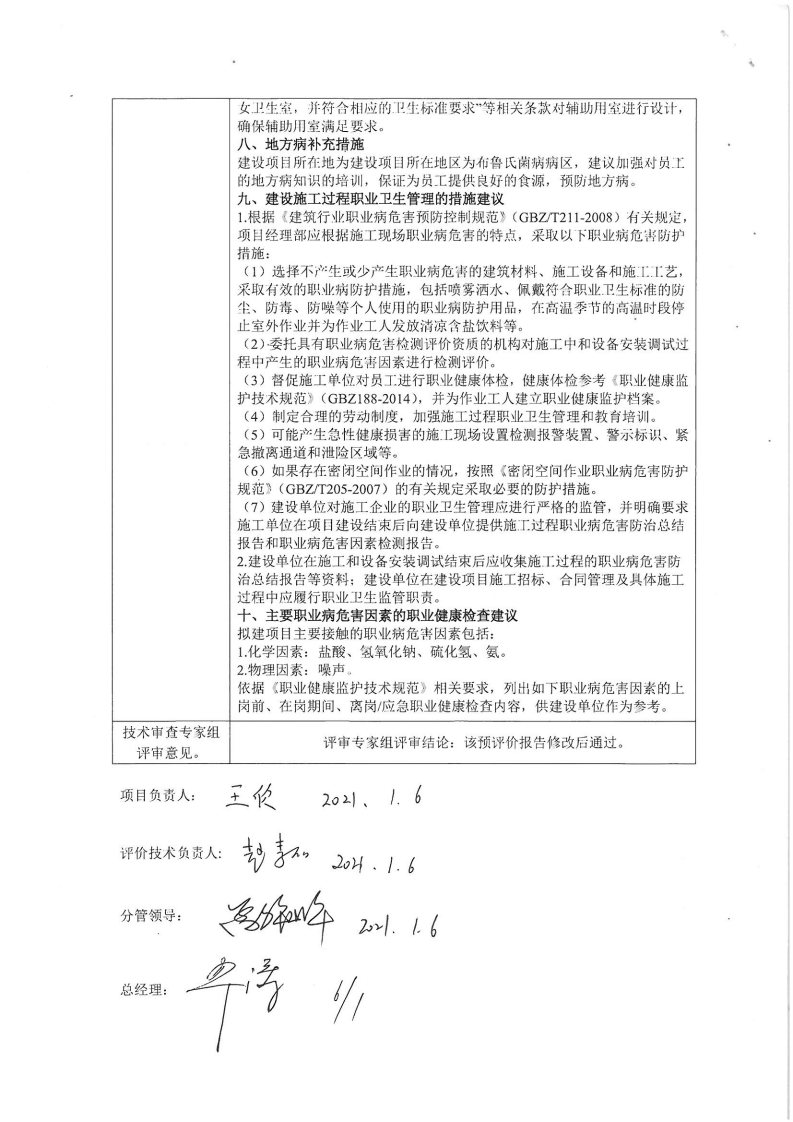 女卫生室，并符合相应的卫生标准要求”等相关条款对辅助用室进行设计，
确保辅助用室满足要求。
八、地方病补充措施
建设项目所在地为建设项目所在地区为布鲁氏菌病病区，建议加强对员工
的地方病知识的培训，保证为员工提供良好的食源，预防地方病。
九、建设施工过程职业卫生管理的措施建议
1.根据《建筑行业职业病危害预防控制规范》（GBZ/T211-2008）有关规定，
项目经理部应根据施工现场职业病危害的特点，采取以下职业病危害防护
措施：
（1）选择不产生或少产生职业病危害的建筑材料、施工设备和施工工艺，
采取有效的职业病防护措施，包括喷雾洒水、佩戴符合职业卫生标准的防
尘、防毒、防噪等个人使用的职业病防护用品，在高温季节的高温时段停
止室外作业并为作业工人发放清凉含盐饮料等。
（2）委托具有职业病危害检测评价资质的机构对施工中和设备安装调试过
程中产生的职业病危害因素进行检测评价。
（3）督促施工单位对员工进行职业健康体检，健康体检参考《职业健康监
护技术规范》（GBZ188-2014），并为作业工人建立职业健康监护档案。
（4）制定合理的劳动制度，加强施工过程职业卫生管理和教育培训。
（5）可能产生急性健康损害的施工现场设置检测报警装置、警示标识、紧
急撤离通道和泄险区域等。
（6）如果存在密闭空间作业的情况，按照《密闭空间作业职业病危害防护
规范》（GBZ/T205-2007）的有关规定采取必要的防护措施。
（7）建设单位对施工企业的职业卫生管理应进行严格的监管，并明确要求
施工单位在项目建设结束后向建设单位提供施工过程职业病危害防治总结
报告和职业病危害因素检测报告。
2.建设单位在施工和设备安装调试结束后应收集施工过程的职业病危害防
治总结报告等资料；建设单位在建设项目施工招标、合同管理及具体施工
过程中应履行职业卫生监管职责。
十、主要职业病危害因素的职业健康检查建议
拟建项目主要接触的职业病危害因素包括：
1.化学因素：盐酸、氢氧化钠、硫化氢、氨。
2.物理因素：噪声。
依据《职业健康监护技术规范》相关要求，列出如下职业病危害因素的上
岗前、在岗期间、离岗/应急职业健康检查内容，供建设单位作为参考。
技术审查专家组
评审意见。
评审专家组评审结论：该预评价报告修改后通过。
项目负责人： 王欣 2021、1.6
评价技术负责人: 2021.1.6
分管领导： 2021.1.6
总经理： 6/1